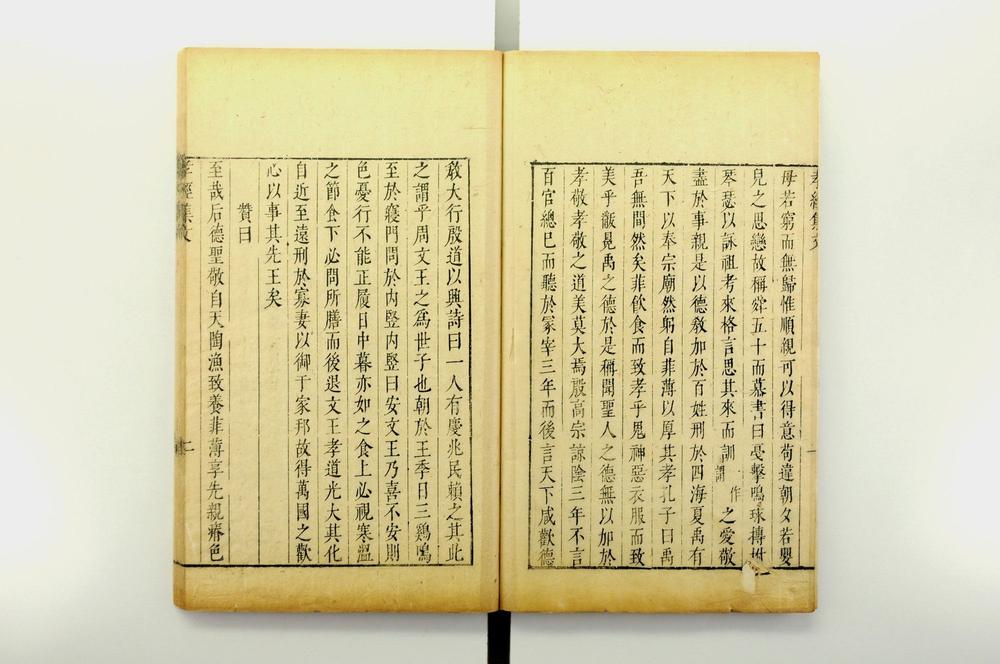 孝經集文
母若窮而無歸惟順親可以得意苟違朝夕若嬰
兒之思戀故稱舜五十而慕書曰戞擊鳴球搏拊
琴瑟以詠祖考來格言思其來而訓謂作之愛敬
盡於事親是以德敎加於百姓刑於四海夏禹有
天下以奉宗廟然躬自菲薄以厚其孝孔子曰禹
吾無間然矣菲飮食而致孝乎鬼神惡衣服而致
美乎黻冕禹之德於是稱聞聖人之德無以加於
孝敬孝敬之道美莫大焉殷高宗諒陰三年不言
百官總已而聽於冢宰三年而後言天下咸歡德
敎大行殷道以興詩曰一人有慶兆民賴之其此
之謂乎周文王之爲世子也朝於王季日三鷄鳴
至於寢門問於內竪內竪曰安文王乃喜不安則
色憂行不能正履日中暮亦如之食上必視寒溫
之節食下必問所膳而後退文王孝道光大其化
自近至遠刑於寡妻以御于家邦故得萬國之歡
心以事其先王矣
贊曰
至哉后德聖敬自天陶漁致養菲薄享先親瘠色
孝經集文